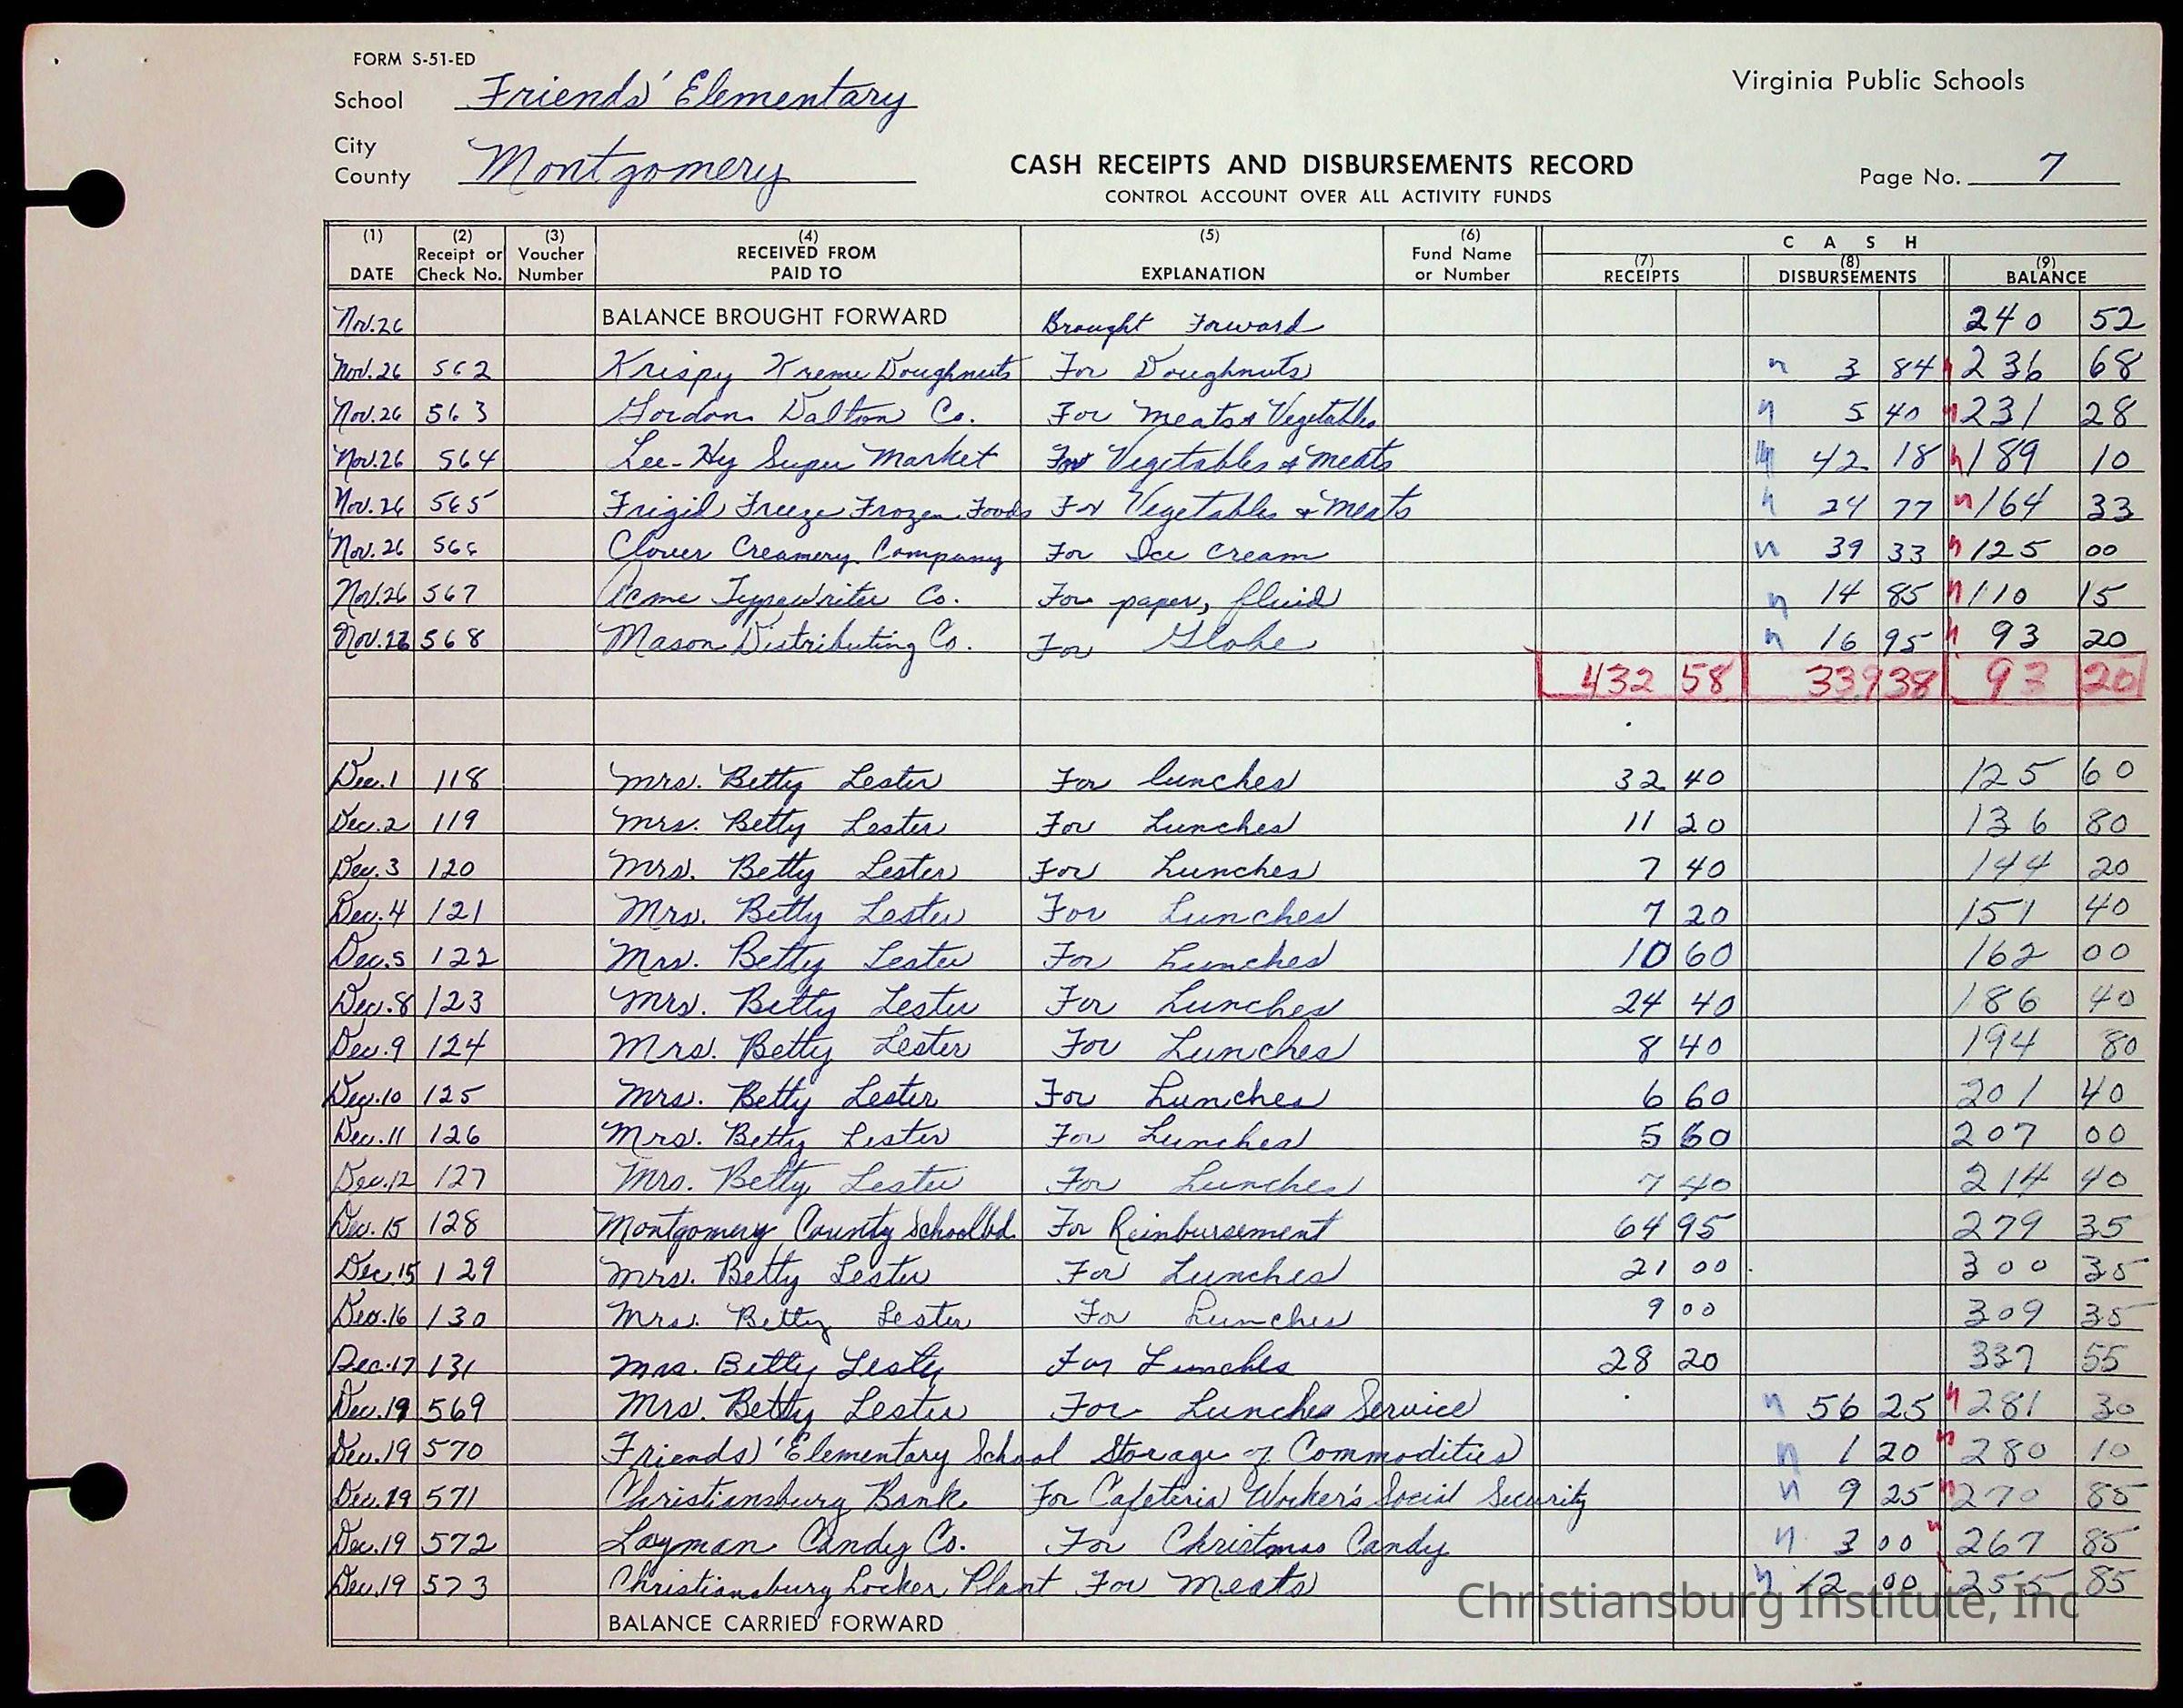 FORM S-51-ED
School Friends' Elementary
Virginia Public Schools
City
County Montgomery
CASH RECEIPTS AND DISBURSEMENTS RECORD
CONTROL ACCOUNT OVER ALL ACTIVITY FUNDS
Page No. 7
(1) DATE (2) Receipt or Check No. (3) Voucher Number (4) RECEIVED FROM PAID TO (5) EXPLANATION (6) Fund Name or Number CASH (7) RECEIPTS (8) DISBURSEMENTS (9) BALANCE
Nov. 26 BALANCE BROUGHT FORWARD Brought Forward 240 52
Nov. 26 562 Krispy Kreme Doughnuts For Doughnuts 3 84 236 68
Nov. 26 563 Gordon Dalton Co. For Meats & Vegetables 5 40 231 28
Nov. 26 564 Lee-Hy Super Market For Vegetables & Meats 42 18 189 10
Nov. 26 565 Frigid Freeze Frozen Foods For Vegetables & Meats 24 77 164 33
Nov. 26 566 Clover Creamery Company For Ice Cream 39 33 125 00
Nov. 26 567 Acme Typewriter Co. For paper, fluid 14 85 110 15
Nov. 26 568 Mason Distributing Co. For Globe 16 95 93 20
432 58 339 38 93 20
Dec. 1 118 Mrs. Betty Lester For lunches 32 40 125 60
Dec. 2 119 Mrs. Betty Lester For Lunches 11 20 136 80
Dec. 3 120 Mrs. Betty Lester For Lunches 7 40 144 20
Dec. 4 121 Mrs. Betty Lester For Lunches 7 20 151 40
Dec. 5 122 Mrs. Betty Lester For Lunches 10 60 162 00
Dec. 8 123 Mrs. Betty Lester For Lunches 24 40 186 40
Dec. 9 124 Mrs. Betty Lester For Lunches 8 40 194 80
Dec. 10 125 Mrs. Betty Lester For Lunches 6 60 201 40
Dec. 11 126 Mrs. Betty Lester For Lunches 5 60 207 00
Dec. 12 127 Mrs. Betty Lester For Lunches 7 40 214 40
Dec. 15 128 Montgomery County School bd. For Reinbursement 64 95 279 35
Dec. 15 129 Mrs. Betty Lester For Lunches 21 00 300 35
Dec. 16 130 Mrs. Betty Lester For Lunches 9 00 309 35
Dec. 17 131 Mrs. Betty Lester For Lunches 28 20 337 55
Dec. 19 569 Mrs. Betty Lester For Lunches Service 56 25 281 30
Dec. 19 570 Friends' Elementary School Storage of Commodities 1 20 280 10
Dec. 19 571 Christiansburg Bank For Cafeteria Worker's Social Security 9 25 270 85
Dec. 19 572 Layman Candy Co. For Christmas Candy 3 00 267 85
Dec. 19 573 Christiansburg Locker Plant For Meats 12 00 255 85
Christiansburg Institute, Inc
BALANCE CARRIED FORWARD